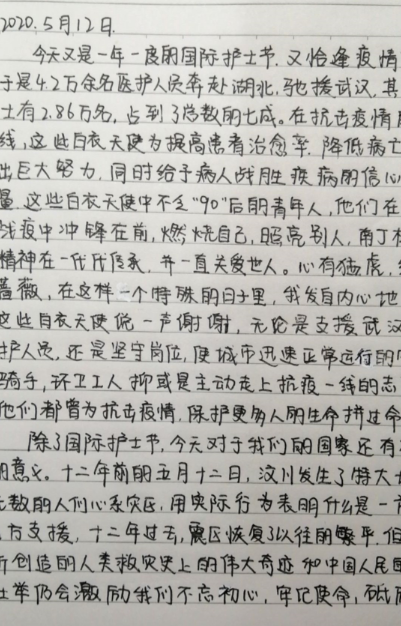 2020.5月12日.
今天又是一年一度的国际护士节.又恰逢疫情
于是4.2万余名医护人员奔赴湖北,驰援武汉.其
士有2.86万名,占到了总数的七成.在抗击疫情
线,这些白衣天使为提高患者治愈率.降低病亡
出巨大努力.同时给予病人战胜疾病的信心
量.这些白衣天使中不乏“90”后的青年人,他们在
战疫中冲锋在前,燃烧自己,照亮别人,南丁
精神在一代代传承.并一直关爱世人。心有猛虎,
蔷薇,在这样一个特殊的日子里,我发自内心地
这些白衣天使说一声谢谢,无论是支援武汉
护人员,还是坚守岗位,使城市迅速正常运行的
骑手,环卫工人抑或是主动走上抗疫一线的志
他们都曾为抗击疫情.保护更多人的生命拼过命
除了国际护士节,今天对于我们的国家还有
的意义。十二年前的五月十二日,汶川发生了特大
无数的人们心系灾区,用实际行为表明什么是一
方支援,十二年过去,震区恢复了以往的繁平.但
所创造的人类救灾史上的伟大奇迹和中国人民
壮举仍会激励我们不忘初心,牢记使命,砥